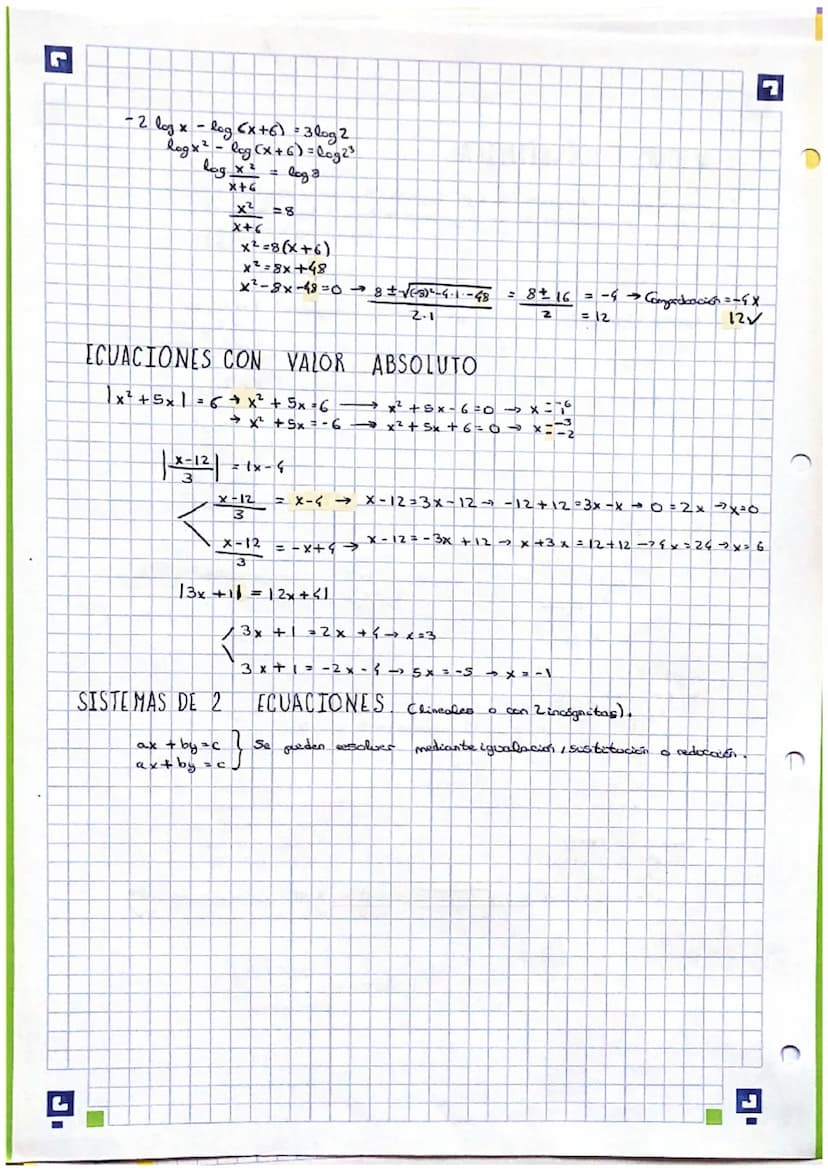 -2 log x - log (x+6) = 3 log 2
log x² - log (x+6) = log 2³
log x²/x+6 = log 8
x²/x+6 = 8
x² = 8(x+6)
x² = 8x + 48
x² - 8x - 48 = 0 → 8 ± √(-8)² - 4·1·-48 / 2·1 = 8 ± 16 / 2 = -4 → Comprobación = -4 X
= 12 12 ✓
ECUACIONES CON VALOR ABSOLUTO
|x² + 5x| = 6 → x² + 5x = 6 → x² + 5x - 6 = 0 → x = -6 1
→ x² + 5x = -6 → x² + 5x + 6 = 0 → x = -3 -2
|x-12/3| = |x-4
x-12/3 = x-4 → x-12 = 3x-12 → -12+12 = 3x-x → 0 = 2x → x=0
x-12/3 = -x+4 → x-12 = -3x+12 → x+3x = 12+12 → 4x = 24 → x = 6
|3x+1| = |2x+4|
3x + 1 = 2x + 4 → x = 3
3x + 1 = -2x - 4 → 5x = -5 → x = -1
SISTEMAS DE 2 ECUACIONES. (lineales o con 2 incógnitas).
ax + by = c } Se pueden resolver mediante igualación, sustitución o reducción.
ax + by = c